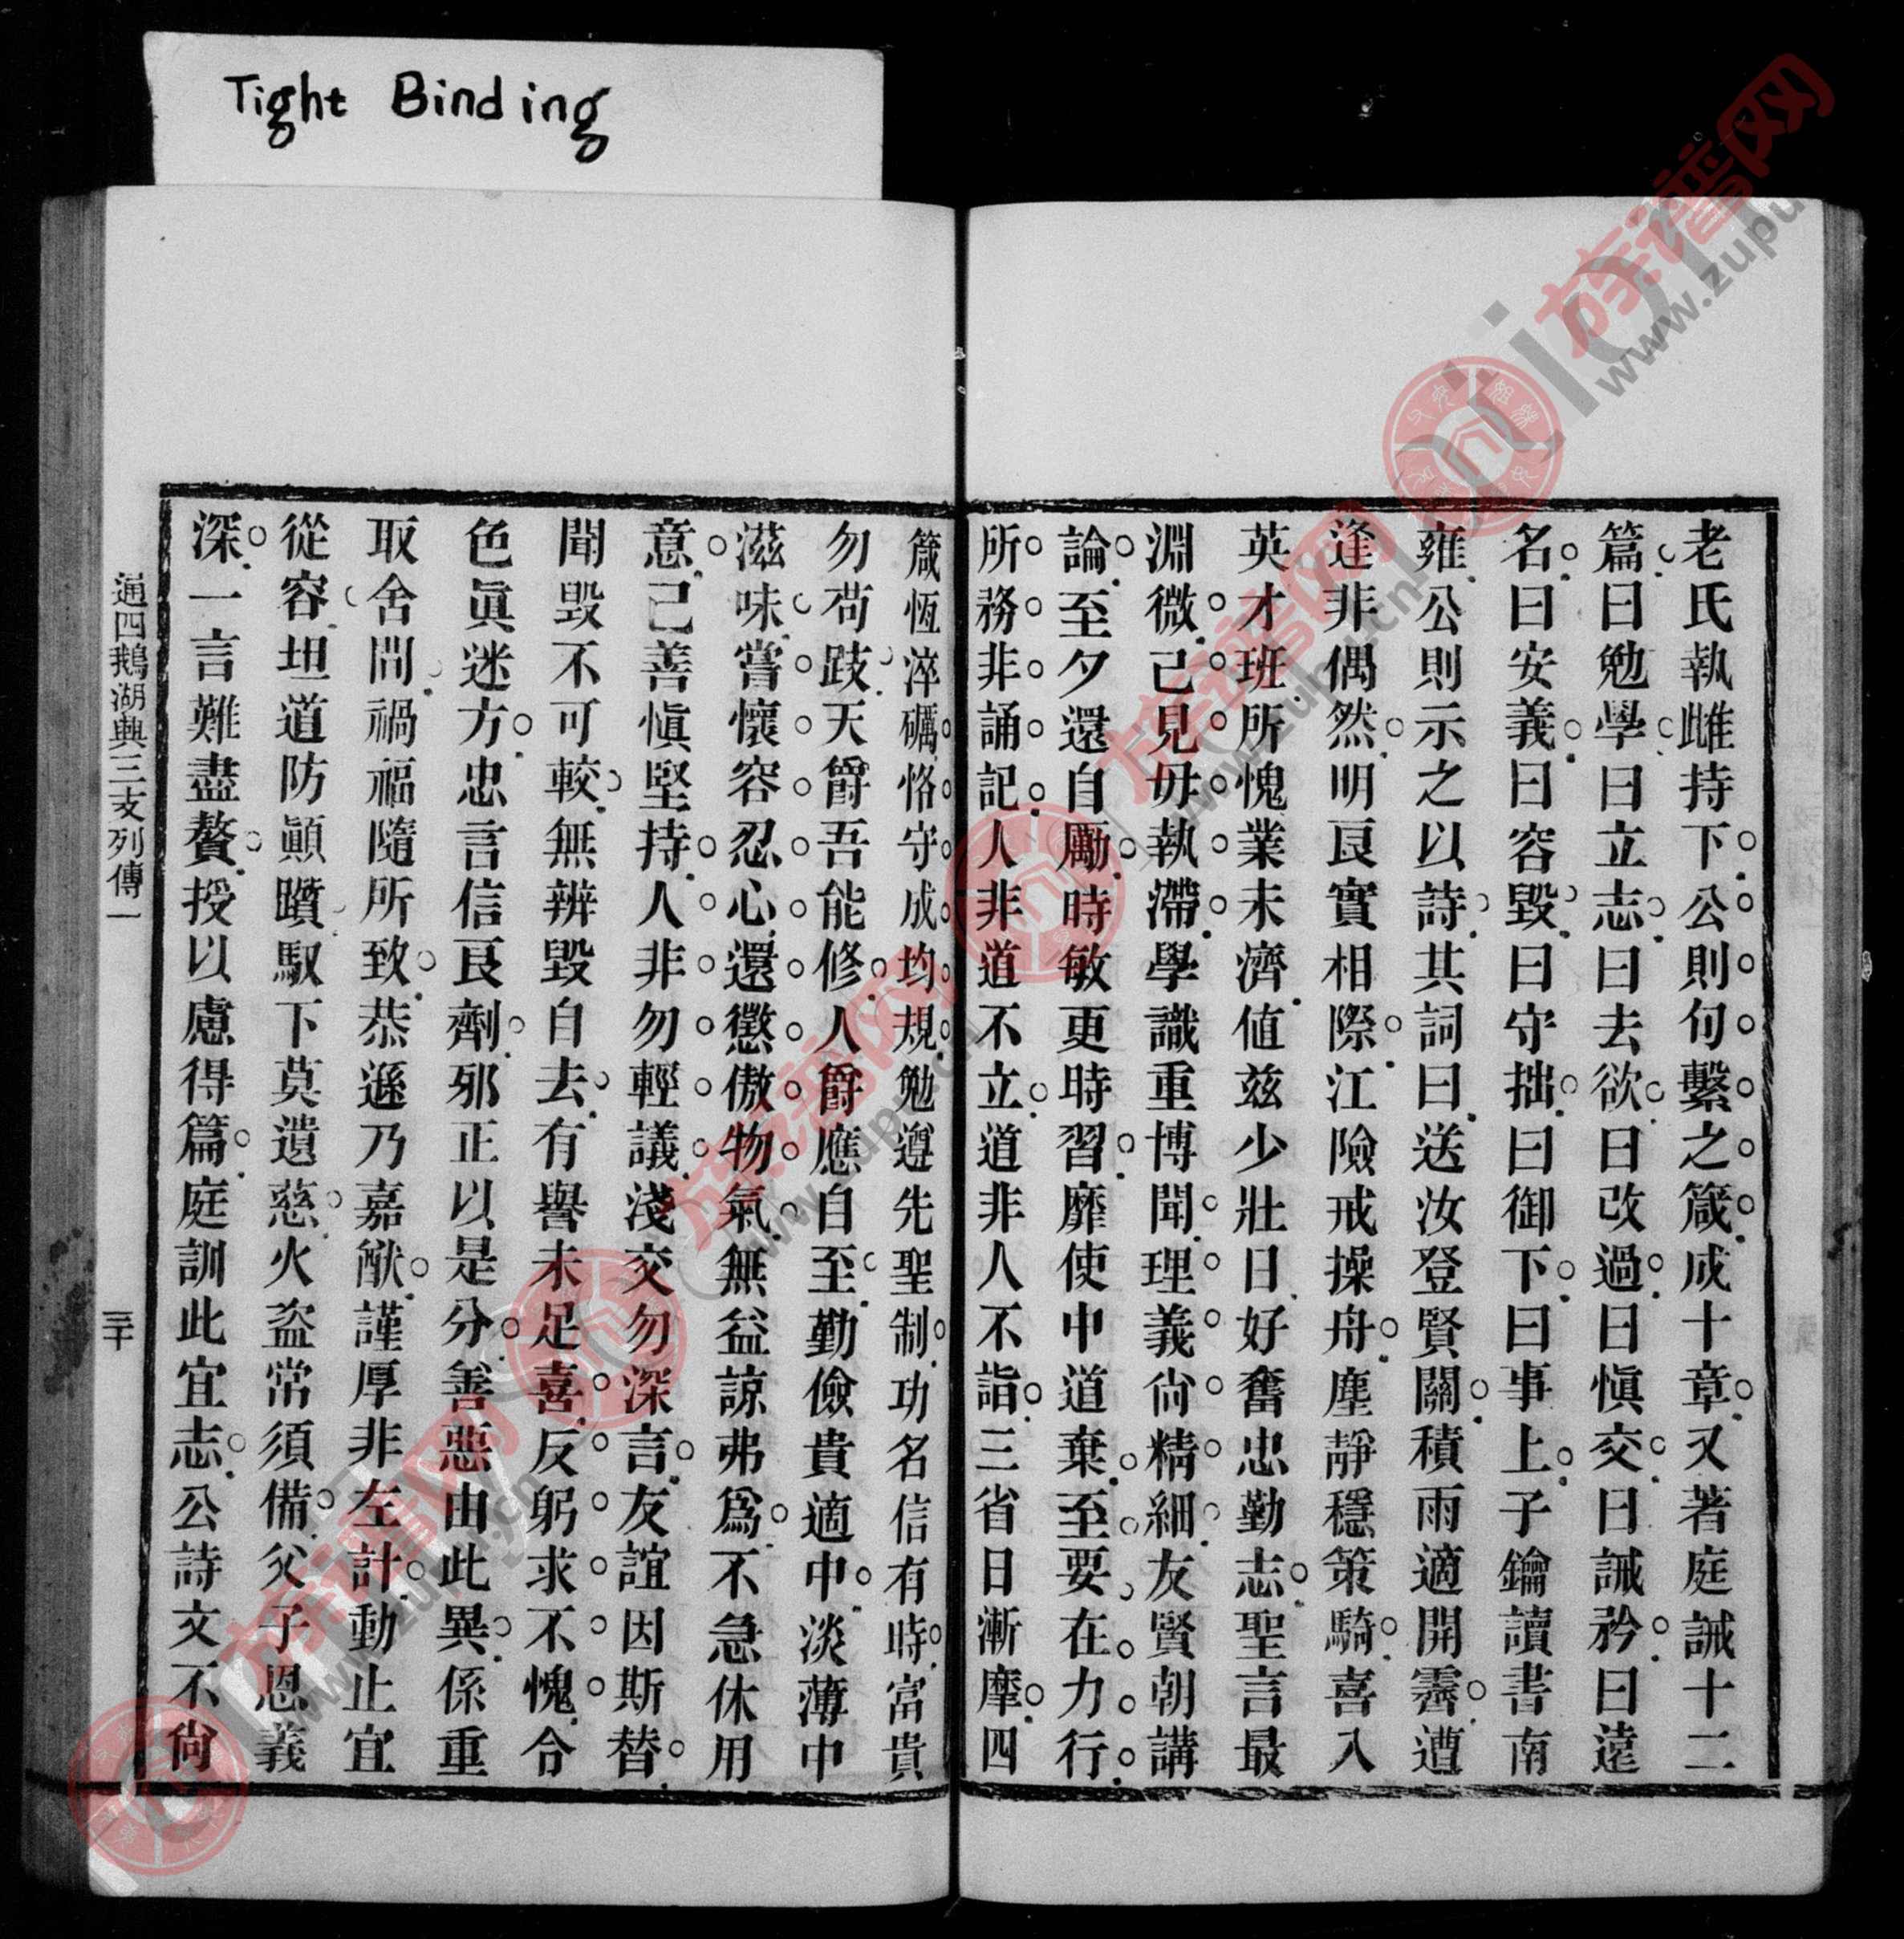 Tight Binding
老氏執雌持下公則句繫之箴成十章又著庭誡十二
篇曰勉學曰立志曰去欲曰改過曰慎交曰誡矜曰遠
名曰安義曰容毀曰守拙曰御下曰事上子鑰讀書南
雍公則示之以詩其詞曰送汝登賢關積雨適開霽遭
逢非偶然明良實相際江險戒操舟塵靜穩策騎喜入
英才班所愧業未濟值茲少壯日好奮忠勤志聖言最
淵微己見毋執滯學識重博聞理義尙精細友賢朝講
論至夕還自勵時敏更時習靡使中道棄至要在力行
所務非誦記人非道不立道非人不詣三省日漸摩四
箴恆淬礪恪守成均規勉遵先聖制功名信有時富貴
勿苟跂天爵吾能修人爵應自至勤儉貴適中淡薄中
滋味嘗懷容忍心還懲傲物氣無益諒弗爲不急休用
意己善慎堅持人非勿輕議淺交勿深言友誼因斯替
聞毀不可較無辨毀自去有譽未足喜反躬求不愧合
色眞迷方忠言信良劑邪正以是分善惡由此異係重
取舍間禍福隨所致恭遜乃嘉猷謹厚非左計動止宜
從容坦道防顚躓馭下莫遺慈火盜常須備父子恩義
深一言難盡贅授以慮得篇庭訓此宜志公詩文不尙
通四鵝湖興三支列傳一
三十
族谱网
www.zupu.cn